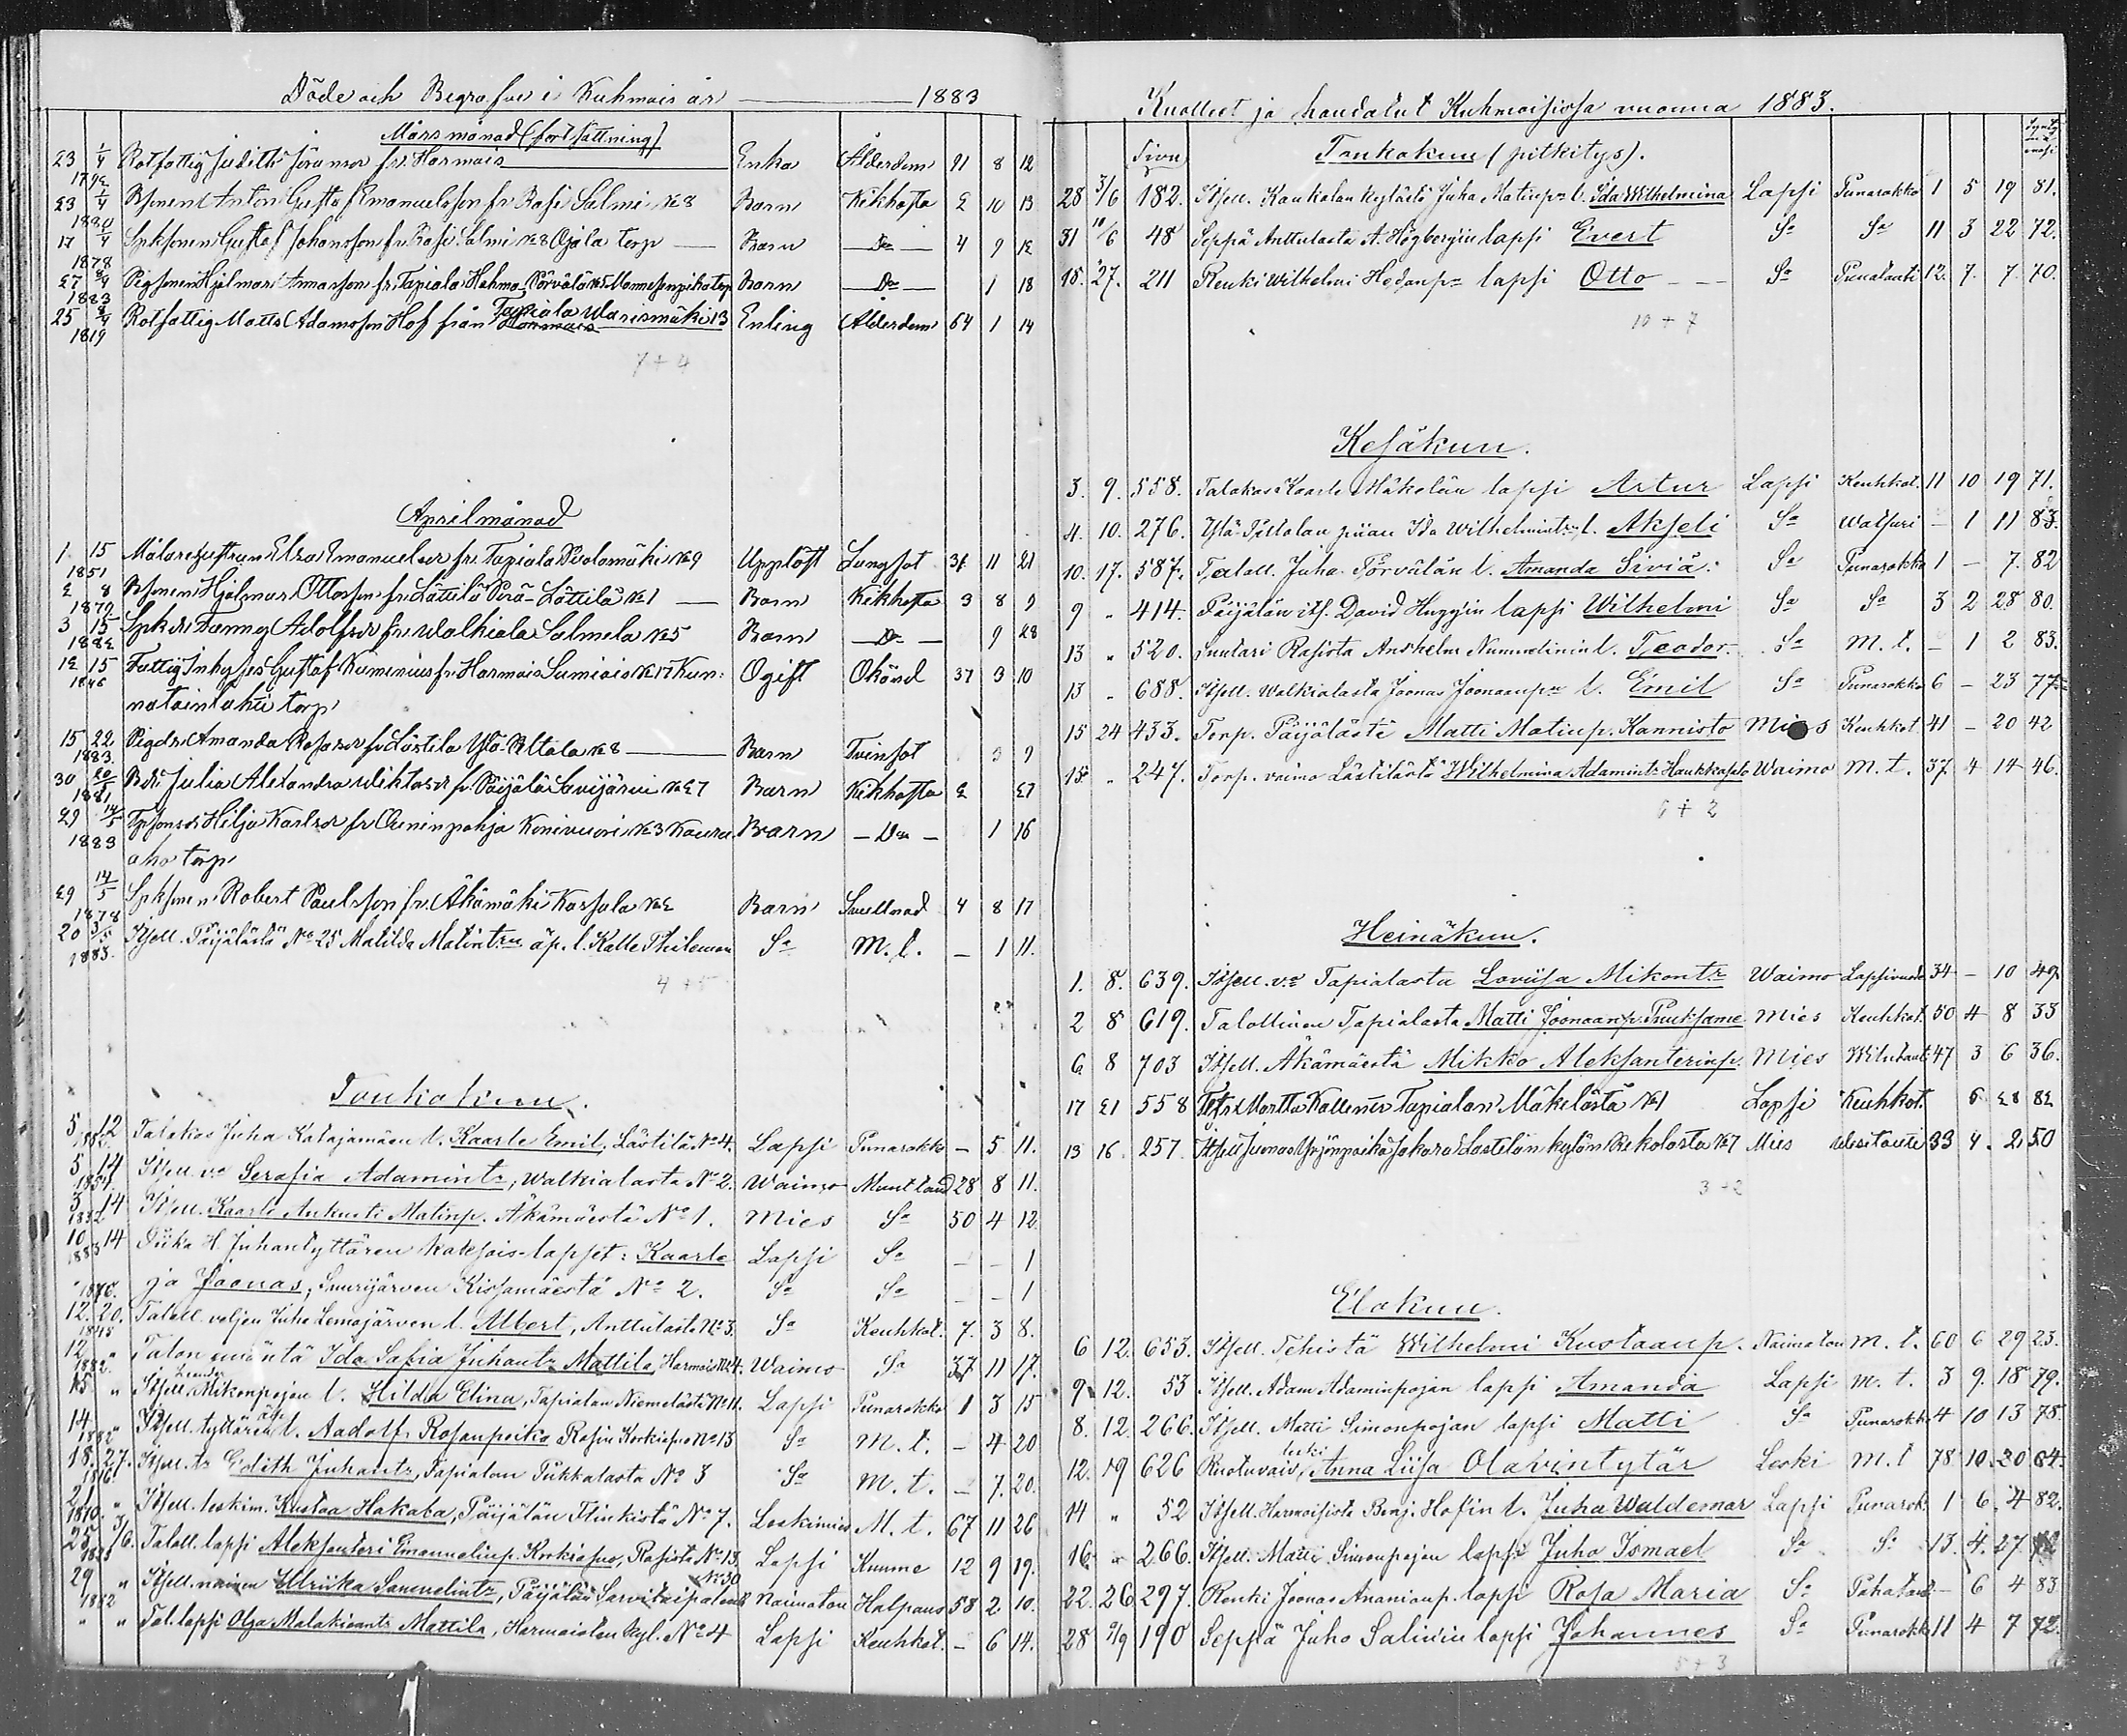 Döde och Begrafne i Kuhmois år 1883
Mars månad (fortsättning)
23 1/4 Rotfattig Judith Göransdr fr. Harmois Enka Ålderdom 91 8 12
179
23 1/4 Bsonen Anton Gustaf Emanuelsson fr. Rasi Salmi No 8 Barn Kikhosta 2 10 13
1880
17 1/4 Spksonen Gustaf Johansson fr. Rasi Salmi No 8 Ojala torp Barn Do 4 9 12
1878
27 8/4 Pigsonen Hjelmar Annasson fr. Tapiala Hahmo Barn Do 1 18
1883
25 8/4 Rotfattig Matts Adamsson Hof från Tapiala Warismäki 13 Enling Ålderdom 64 1 14
1819 Harmois
7 + 4
April månad
1 15 Målarehustrun Elza Emanuelsdr fr. Tapiala No 9 Upplöst Lungsot 31 11 21
1851
2 8 Bsonen Hjelmar Ottosson fr. Lästilä Perä-Lästilä No 1 Barn Kikhosta 3 8 9
1879
3 15 Spkdr Fanny Adolfsdr fr. Walkiala Salmela No 5 Barn Do 9 28
1882
12 15 Fattig Inhyses Gustaf Kumenius fr. Harmois No 17 Kum= Ogift Okänd 37 3 10
1846 natainlahti torp
15 22 Pigdr. Amanda Rosasdr fr. Lästilä Ylä-Piltala No 8 Barn Tvinsot 3 9
1883
30 20/5 Bdr. Julia Alexandra Wiktorsdr fr. Päijälä Savijärvi No 27 Barn Kikhosta 2 27
1881
29 14/5 Hilja Karlsdr fr. Oreninpohja Konivuori No 3 Kaura Barn Do 1 16
1883 aho torp
29 14/5 Spksonen Robert Paulsson fr. Äkämäki Kassala No 2 Barn Svullnad 4 8 17
1878
20 3/5 Itsell. Päijälästä No 25 Matilda Matint:en äp. l. Kalle Philemon So M. t. – 1 11.
1883.
4 + 5
Toukokuu.
5 12 Talokas Juha Katajamäen l. Kaarle Emil, Lästilä No 4. Lapsi Punarokko – 5 11.
1882
5 14 Itsell. va Serafia Adamintr, Walkialasta No 2. Waimo Muut taud 28 8 11.
1854
3 14 Itsell. Kaarle Aukusti Matinp. Äkämäestä No 1. Mies So 50 4 12
1832
10 14 Piika H. Juhantyttären kaksois-lapset: Kaarle Lapsi So – – 1
1883
ja Joonas, Suurijärven Kissamäestä No 2. So So – – 1
1876.
12. 20. Talell. veljen Juho Lemojärven l. Albert, Anttulasta No 3. So Keuhkot. 7. 3 8.
1845
12 " Talon emäntä Ida Safia Juhantr Mattila, Harmois No 4. Waimo So 37 11 17.
1882. Leander
15 " Itsell. Mikonpojan l. Hilda Elina, Tapialan Niemelästä No 11. Lapsi Punarokko 1 3 15
14 " Itsell. tyttären äp. l. Aadolf Rosanpoika Rasin Korkiasuo No 13 So M. t. – 4 20
1882
18. 27. Itsell. tr Edith Juhantr, Tapialan Tukkalasta No 3 So M. t. – 7. 20.
1816.
21 " Itsell. leskim. Kustaa Hakaba, Päijälän Flinkistä No 7. Leskimies M. t. 67 11 26
1870.
25 3/6. Talell. lapsi Aleksanteri Emanuelinp. Korkiasuo, Rasista No 13. Lapsi Kuume 12 9 19.
No 30
29 " Itsell. nainen Ulriika Samuelintr, Päijälän Sarvitaipaleesta Naimaton Halpaus 58 2 10.
1882
" " Tal. lapsi Olga Malakiaantr Mattila, Harmoisten kyl. No 4 Lapsi Keuhkot. – 6 14.
Kuolleet ja haudatut Kuhmoisissa vuonna 1883.
Sivu Toukokuu (pitkitys).
28 3/6 182. Itsell. Kaukolan kylästä Juha Matinpn l. Ida Wilhelmina Lapsi Punarokko 1 5 19 81.
31 10/6 48 Seppä Anttulasta A. Högbergin lapsi Evert So So 11 3 22 72.
15. 27. 211 Renki Wilhelmi Hedanpn lapsi Otto So Punatauti 12. 7. 7. 70.
10 + 7
Kesäkuu.
3. 9. 558. Talokas Kaarle Mäkelän lapsi Artur Lapsi Keuhkot. 11 10 19 71.
4. 10. 276. Ylä-Piltolan piian Ida Wilhelmintr l. Akseli So Watsuri – 1 11 83.
10. 17. 587. Talell. Juha Pörvälän l. Amanda Siviä. So Punarokko 1 – 7. 82
9 " 414. Päijälän its. David Huggin lapsi Wilhelmi So So 3 2 28 80.
13 " 520. Suutari Rasista Anshelm Nummelinin l. Teodor. So M. t. – 1 2 83.
13 " 688. Itsell. Walkialasta Joonas Joonaanpn l. Emil So Punarokko 6 – 23 77.
15 24 433. Torp. Päijälästä Matti Matinp. Kannisto Mies Keuhkot 41 – 20 42
15 " 247. Torp. vaimo Lästilästä Wilhelmina Adamintr Haukkasalo Waimo M. t. 37 4 14 46.
6 + 2
Heinäkuu.
1. 8. 639. Itsell. va Tapialasta Loviisa Mikontr Waimo Lapsivuode 34 – 10 49
2 8 619. Talollinen Tapialasta Matti Joonaanp. Mies Keuhkot. 50 4 8 33
6 8 703 Itsell. Äkämäestä Mikko Aleksanterinp. Mies 47 3 6 36.
17 21 558 Martta Kallentr Tapialan Mäkelästä No 1 Lapsi Keuhkot. 6 28 82
13 16. 257. Itsell. Joonas Yrjönpoika Jokora Lästilän kylän Rekolasta No 7 Mies Vesitauti 33 4. 2. 50
3 + 2
Elokuu.
6 12. 653. Itsell. Tehistä Wilhelmi Kustaanp. Naimaton M. t. 60 6 29 23.
9 12. 53 Itsell. Adam Adaminpojan lapsi Amanda Lapsi M. t. 3 9. 18 79.
8. 12. 266. Itsell. Matti Simonpojan lapsi Matti So Punarokk. 4 10 13 78.
12. 19 626 Ruotuvaiv. leski Anna Liisa Olavintytär Leski M. t 78 10. 20 04.
14 " 52 Itsell. Harmoisista Benj. Hofin l. Juha Waldemar Lapsi Punarok. 1 6. 4 82.
16. " 266. Itsell. Matti Simonpojan lapsi Juho Ismael So So 13. 4. 27
22. 26 297. Renki Joonas Ananiaanp. lapsi Rosa Maria So – 6 4 83
28 2/9 190 Seppä Juho Salinin lapsi Johannes So Punarokk. 11 4 7 72.
5 + 3